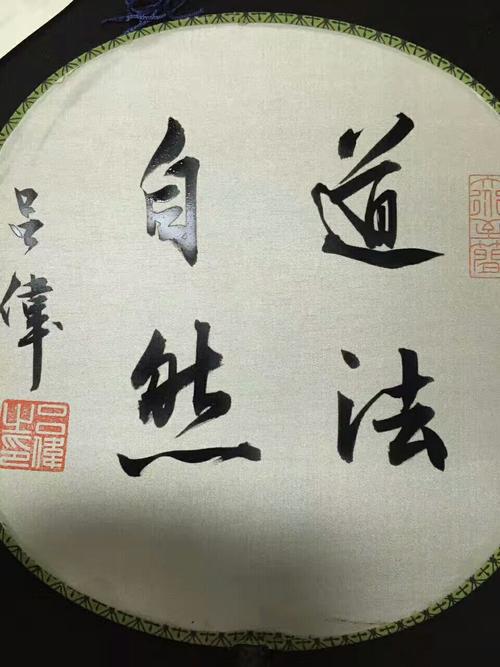 道法
自然
吕偉
吕偉之印